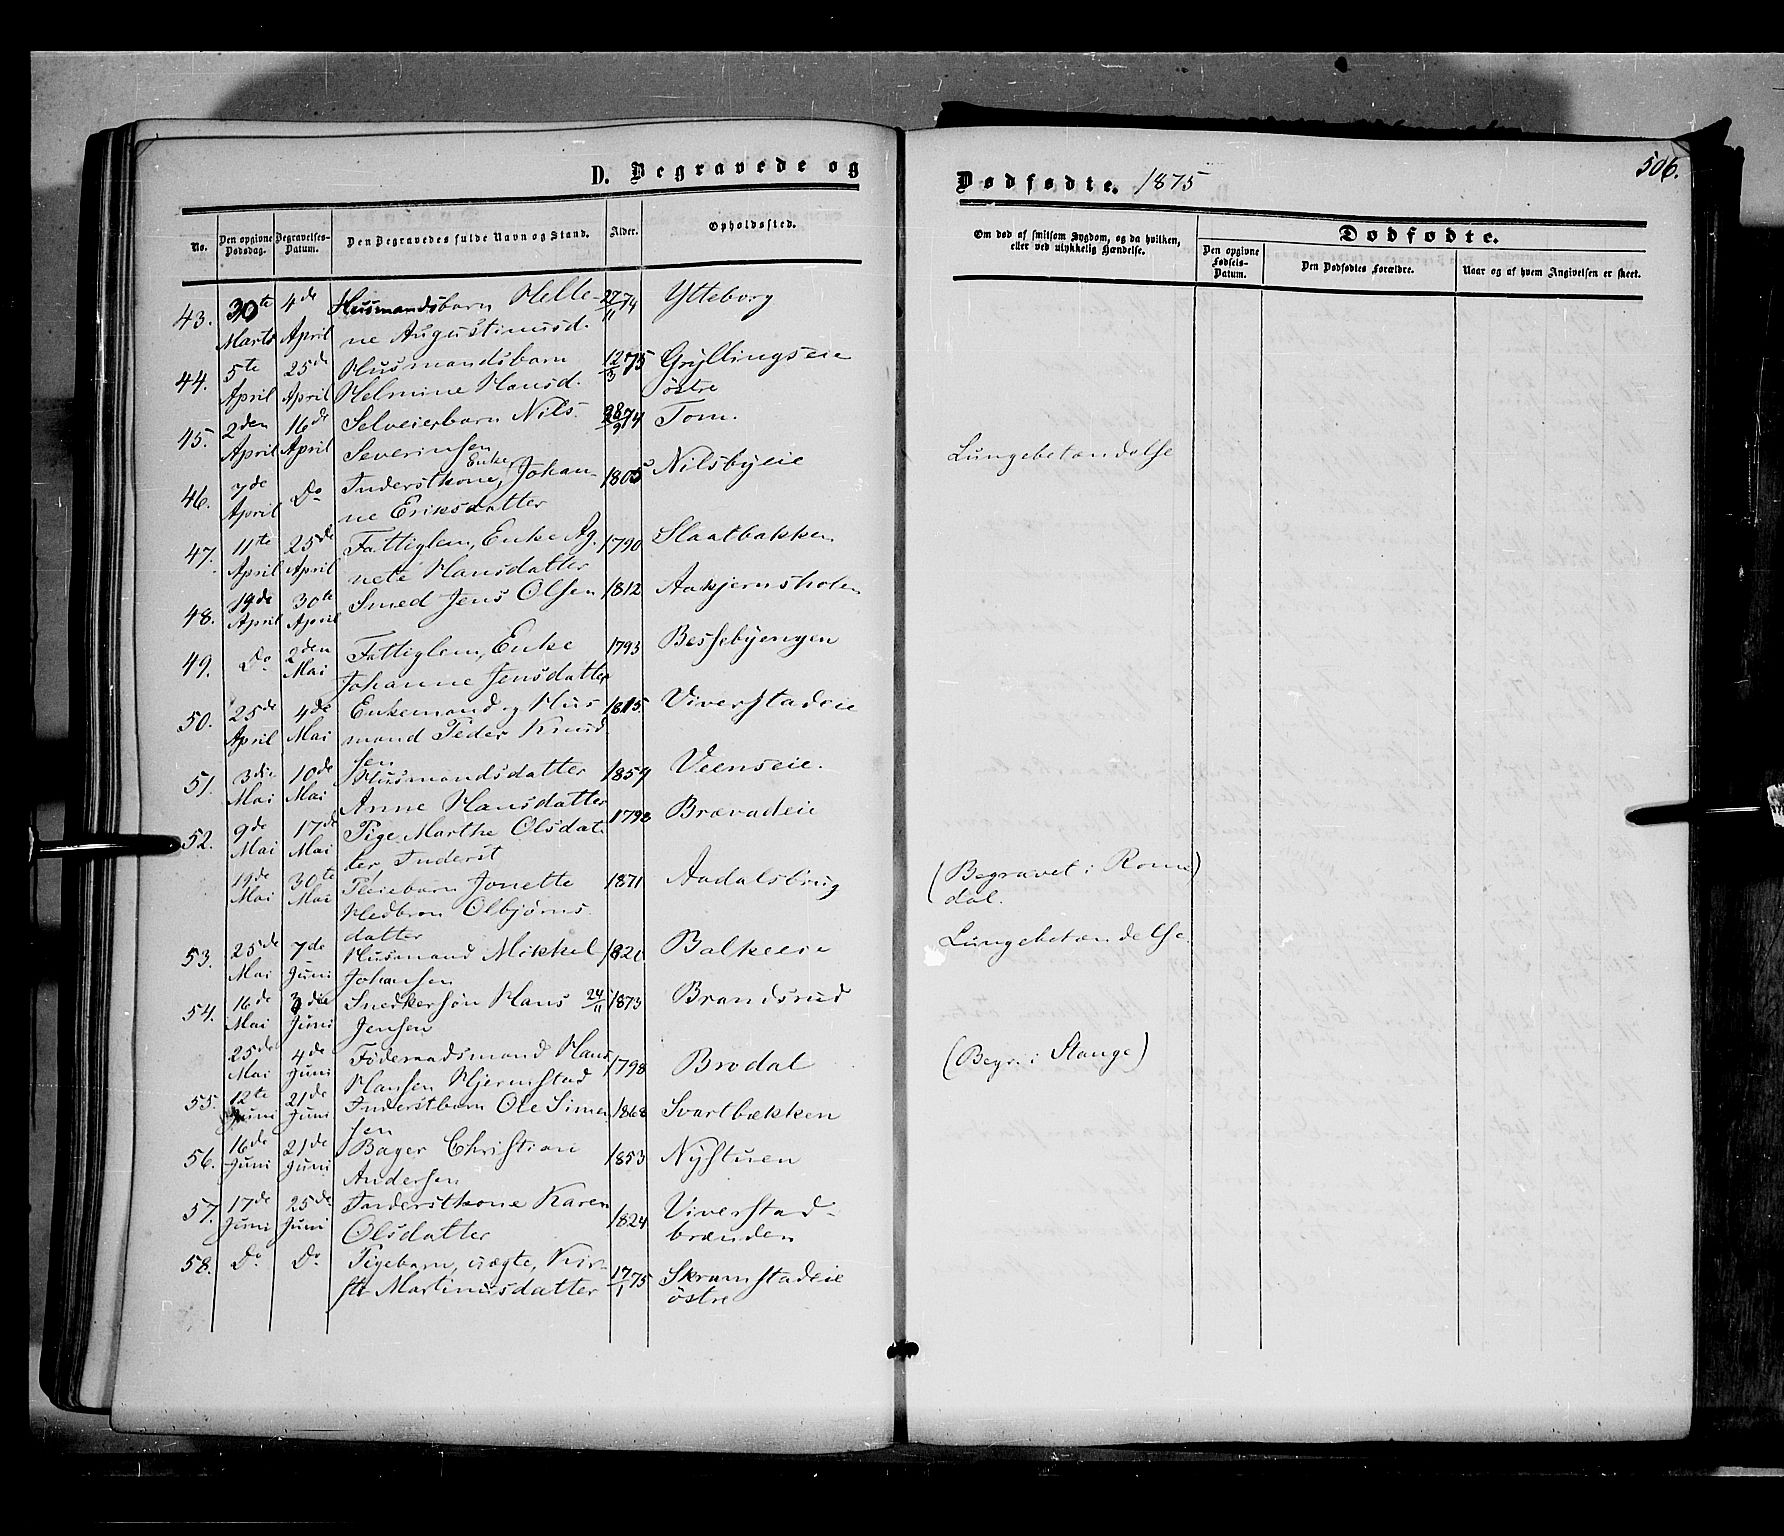 D. Begravede og
Dødfødte. 1875
506.
No.
Den opgivne Dødsdag.
Begravelses-Datum.
Den Begravedes fulde Navn og Stand.
Alder.
Opholdssted.
Om død af smitsom Sygdom, og da hvilken, eller ved ulykkelig Hændelse.
Dødfødte.
Den opgivne Fødsels-Datum.
Den Dødfødtes Forældre.
Naar og af hvem Angivelsen er skeet.
43. 30te 4de Husmandsbarn Helle- 27/11 74 Ytteborg
Marts April ne Augustinusd.
44. 5te 25de Husmandsbarn 12/3 75 Gryllingseie
April April Helmine Hansd. östre
45. 2den 16de Selveierbarn Nils 28/9 74 Tom.
April April Severinsen
46. 7de Do Inderstkone, Enke, Johan- 1805 Nilsbyeie Lungebetændelse
April ne Eriksdatter
47. 11te 25de Fattiglem, Enke Ag- 1790 Slaatbakken
April April nete Hansdatter
48. 19de 30te Smed Jens Olsen 1812 Aakjernsholen
April April
49. Do 2den Fattiglem, Enke 1793 Bessebyengen
Mai Johanne Jensdatter
50. 25de 4de Enkemand og Hus 1815 Viverstadeie
April Mai mand Peder Knud
sen
51. 3die 10de Husmandsdatter 1859 Veenseie.
Mai Mai Anne Hansdatter
52. 9de 17de Pige Marthe Olsdat- 1798 Brævadeie
Mai Mai ter, Inderst
19de 30te Pleiebarn Jonette 1871 Aadalsbrug (Begravet i Roms
Mai Mai Hedbron Olbjørns dal.
datter
53. 25de 7de Husmand Mikkel 1821 Balkeeie Lungebetændelse.
Mai Juni Johansen
54. 16de 3die Snedkersøn Hans 24/11 1873 Brandsrud
Mai Juni Jensen
25de 4de Föderaadsmand Hans 1798 Brodal (Begr. i Stange)
Mai Juni Hansen Hjermstad
55. 12te 21de Inderstbarn Ole Simen 1868 Svartbækken
Juni Juni sen
56. 16de 21de Bager Christian 1853 Nystuen
Juni Juni Andersen
57. 17de 25de Inderstkone Karen 1824 Viverstad-
Juni Juni Olsdatter brænden
58. Do Do Pigebarn, uægte, Kir- 17/1 75 Skramstadeie
ste Martinusdatter östre